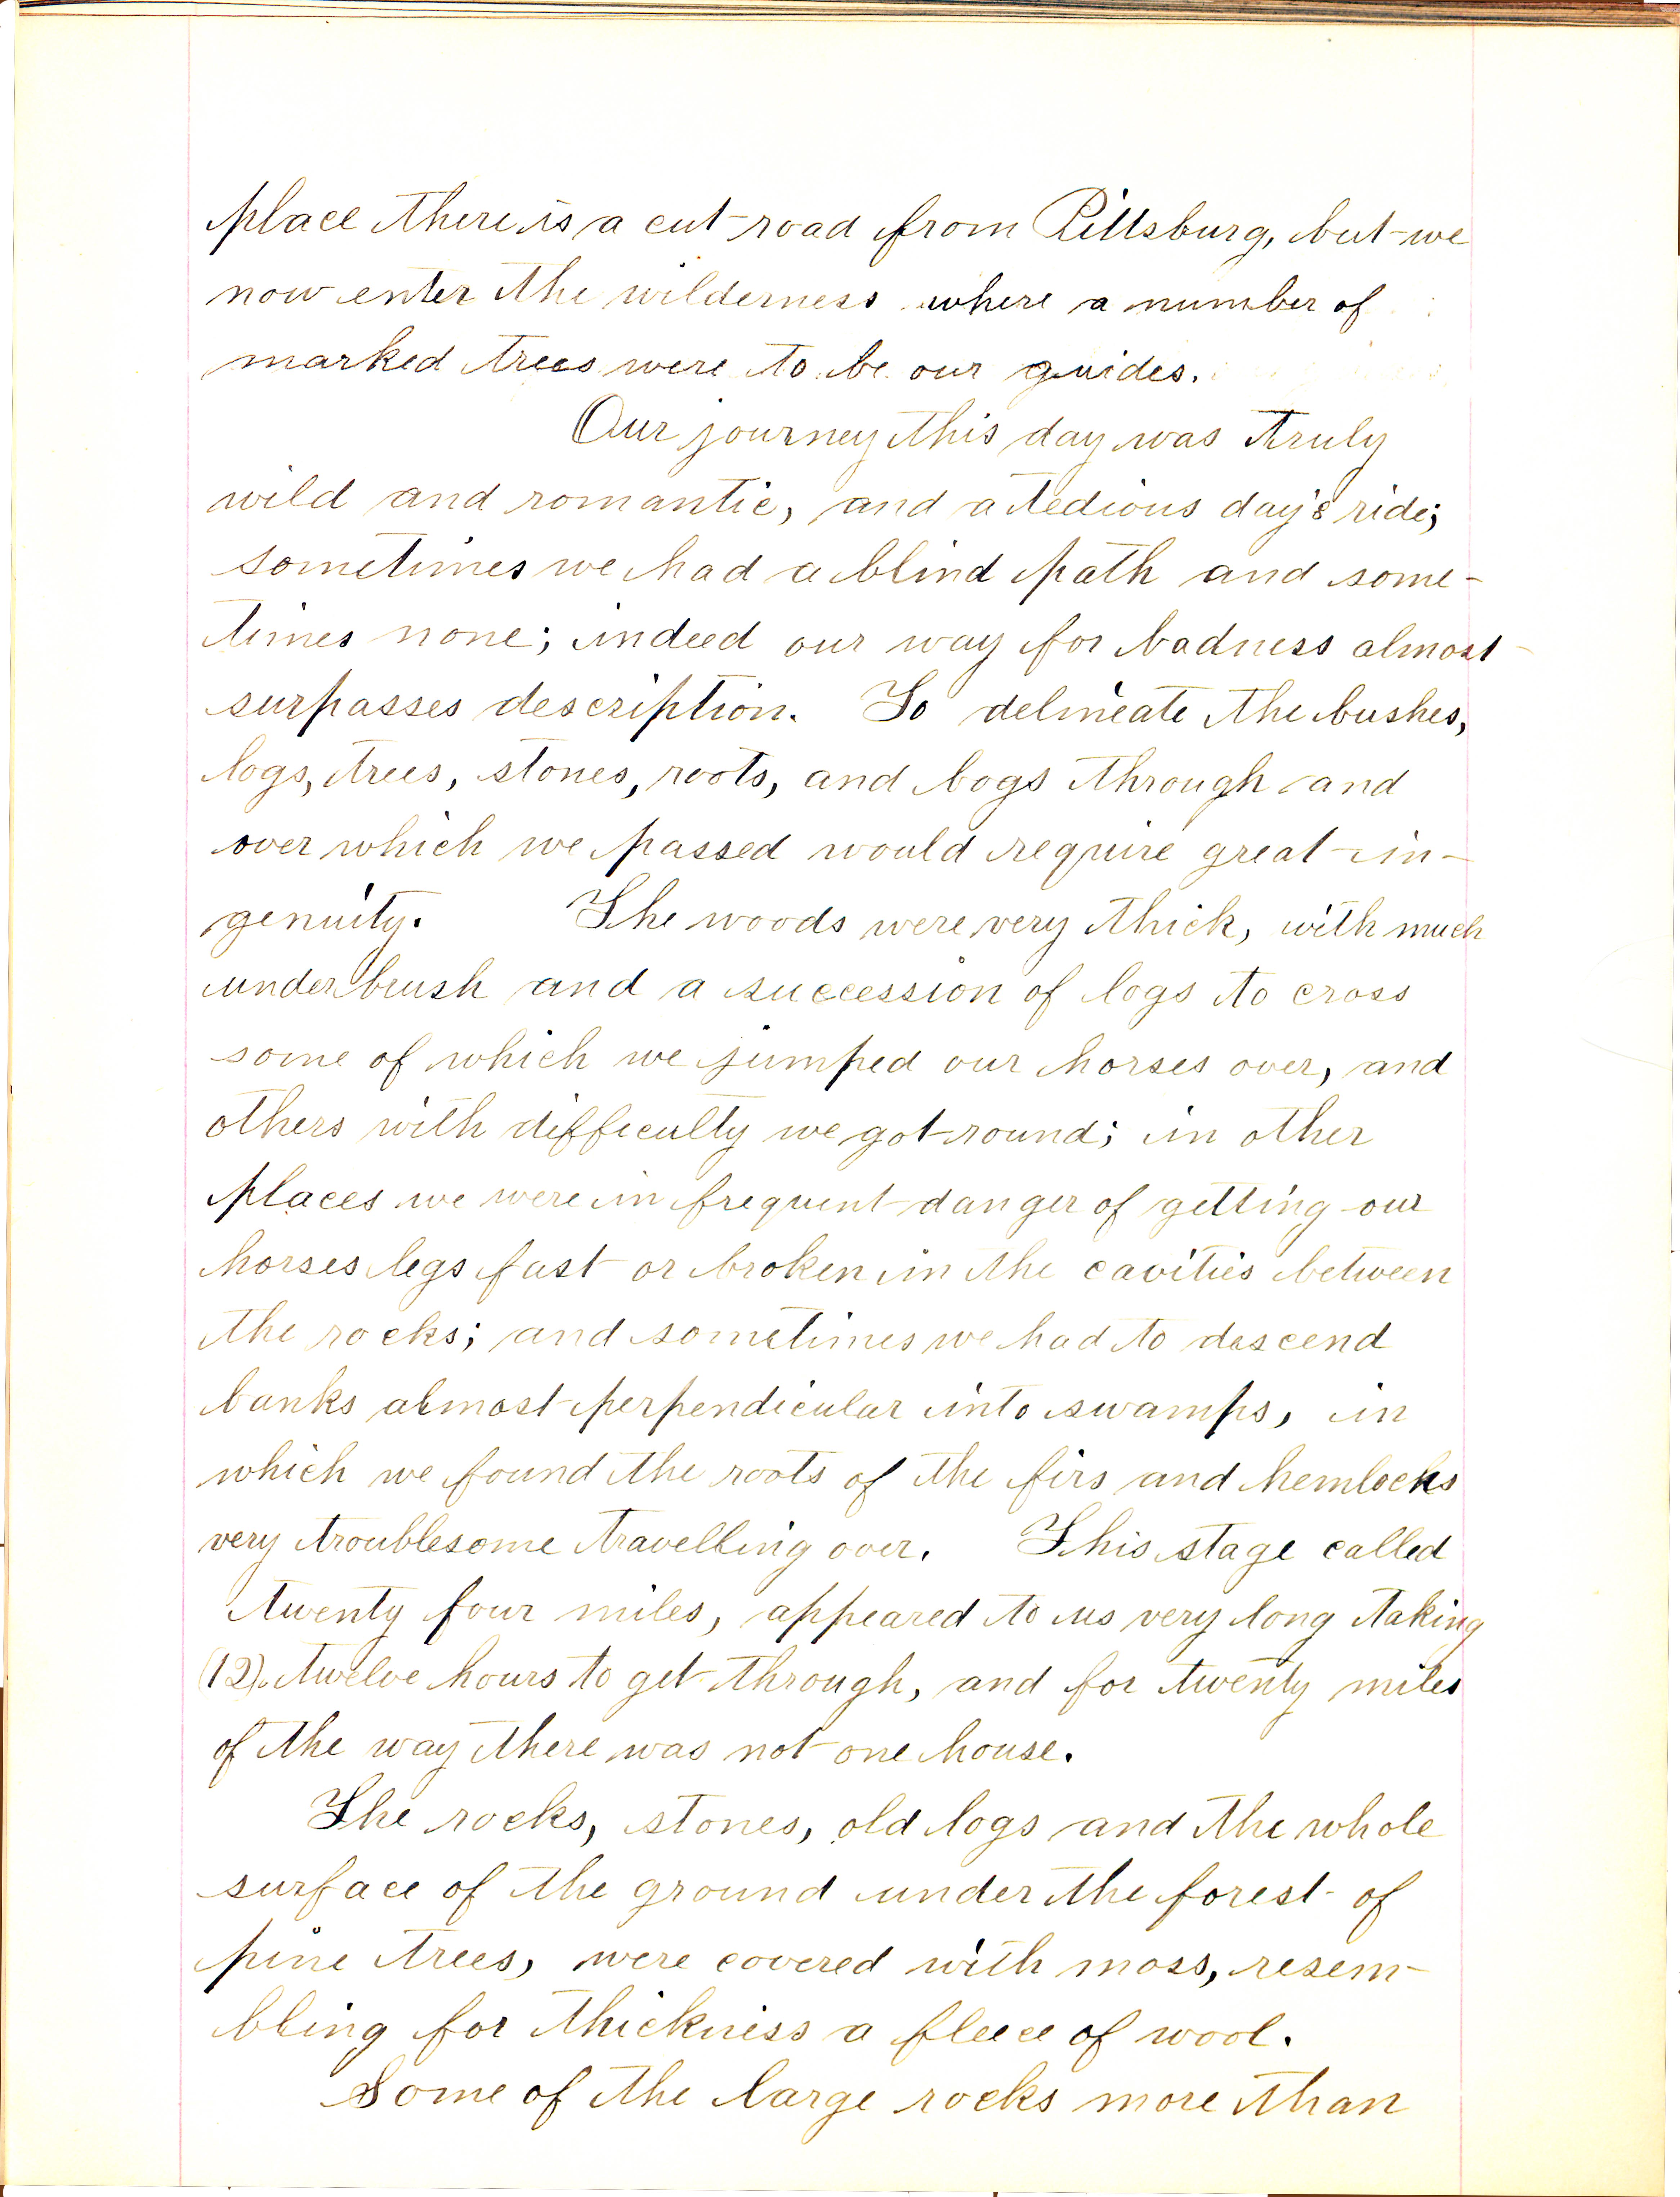 place there is a cut road from Pittsburg, but we
now enter the wilderness where a number of
marked trees were to be our guides.
Our journey this day was truly
wild and romantic, and a tedious day's ride;
sometimes we had a blind path and some-
times none; indeed our way for badness almost
surpasses description. To delineate the bushes,
logs, trees, stones, roots, and bogs through and
over which we passed would require great in-
genuity. The woods were very thick, with much
underbrush and a succession of logs to cross
some of which we jumped our horses over, and
others with difficulty we got round; in other
places we were in frequent danger of getting our
horses legs fast or broken in the cavities between
the rocks; and sometimes we had to descend
banks almost perpendicular into swamps, in
which we found the roots of the firs and hemlocks
very troublesome travelling over. This stage called
twenty four miles, appeared to us very long taking
(12). twelve hours to get through, and for twenty miles
of the way there was not one house.
The rocks, stones, old logs and the whole
surface of the ground under the forest of
pine trees, were covered with moss, resem-
bling for thickness a fleece of wool.
Some of the large rocks more than